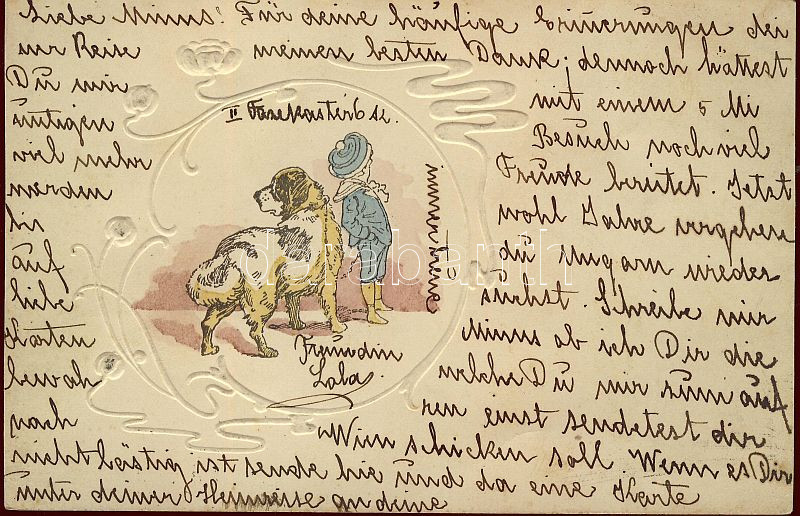 Liebe Minus! Für deine häufige Erinerungen dei
nur Reise meinen besten Dank; dennoch hättest
Du mir mit einem 5 Mi
Besuch noch viel
viel mehr Freude bereitet. Jetzt
werden wohl Jahre vergehen
bis du Ungarn wieder
auf suchst. Schreibe mir
liebe Minus ob ich Dir die
Karten welche Du mir zum auf
bewah ren einst sendetest dir
nach Wien schicken soll Wenn es Dir
nicht lästig ist sende hie und da eine Karte
unter deiner an deine
II 6 sz.
immer treue
Freundin
Lola
darabanth